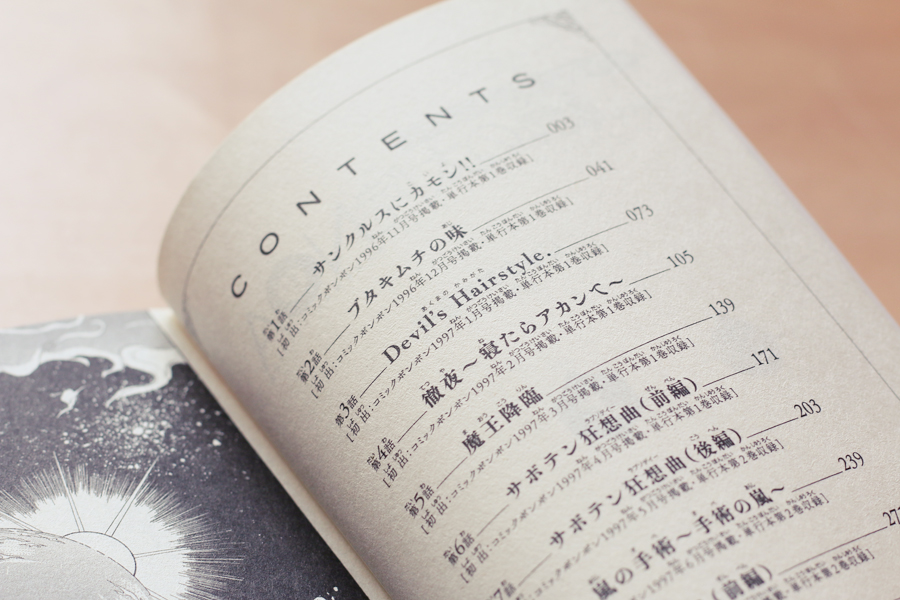 CONTENTS
第1話 サンクルスにカモン!! 003
[初出:コミックボンボン1996年11月号掲載・単行本第1巻収録]
第2話 ブタキムチの味 041
[初出:コミックボンボン1996年12月号掲載・単行本第1巻収録]
第3話 Devil's Hairstyle. 073
[初出:コミックボンボン1997年1月号掲載・単行本第1巻収録]
第4話 徹夜～寝たらアカンて～ 105
[初出:コミックボンボン1997年2月号掲載・単行本第1巻収録]
第5話 魔王降臨 139
[初出:コミックボンボン1997年3月号掲載・単行本第1巻収録]
第6話 サボテン狂想曲(前編) 171
[初出:コミックボンボン1997年4月号掲載・単行本第1巻収録]
7話 サボテン狂想曲(後編) 203
1997年5月号掲載・単行本第2巻収録]
嵐の手術～手術の嵐～ 239
1997年6月号掲載・単行本第2巻収録]
(前編) 27